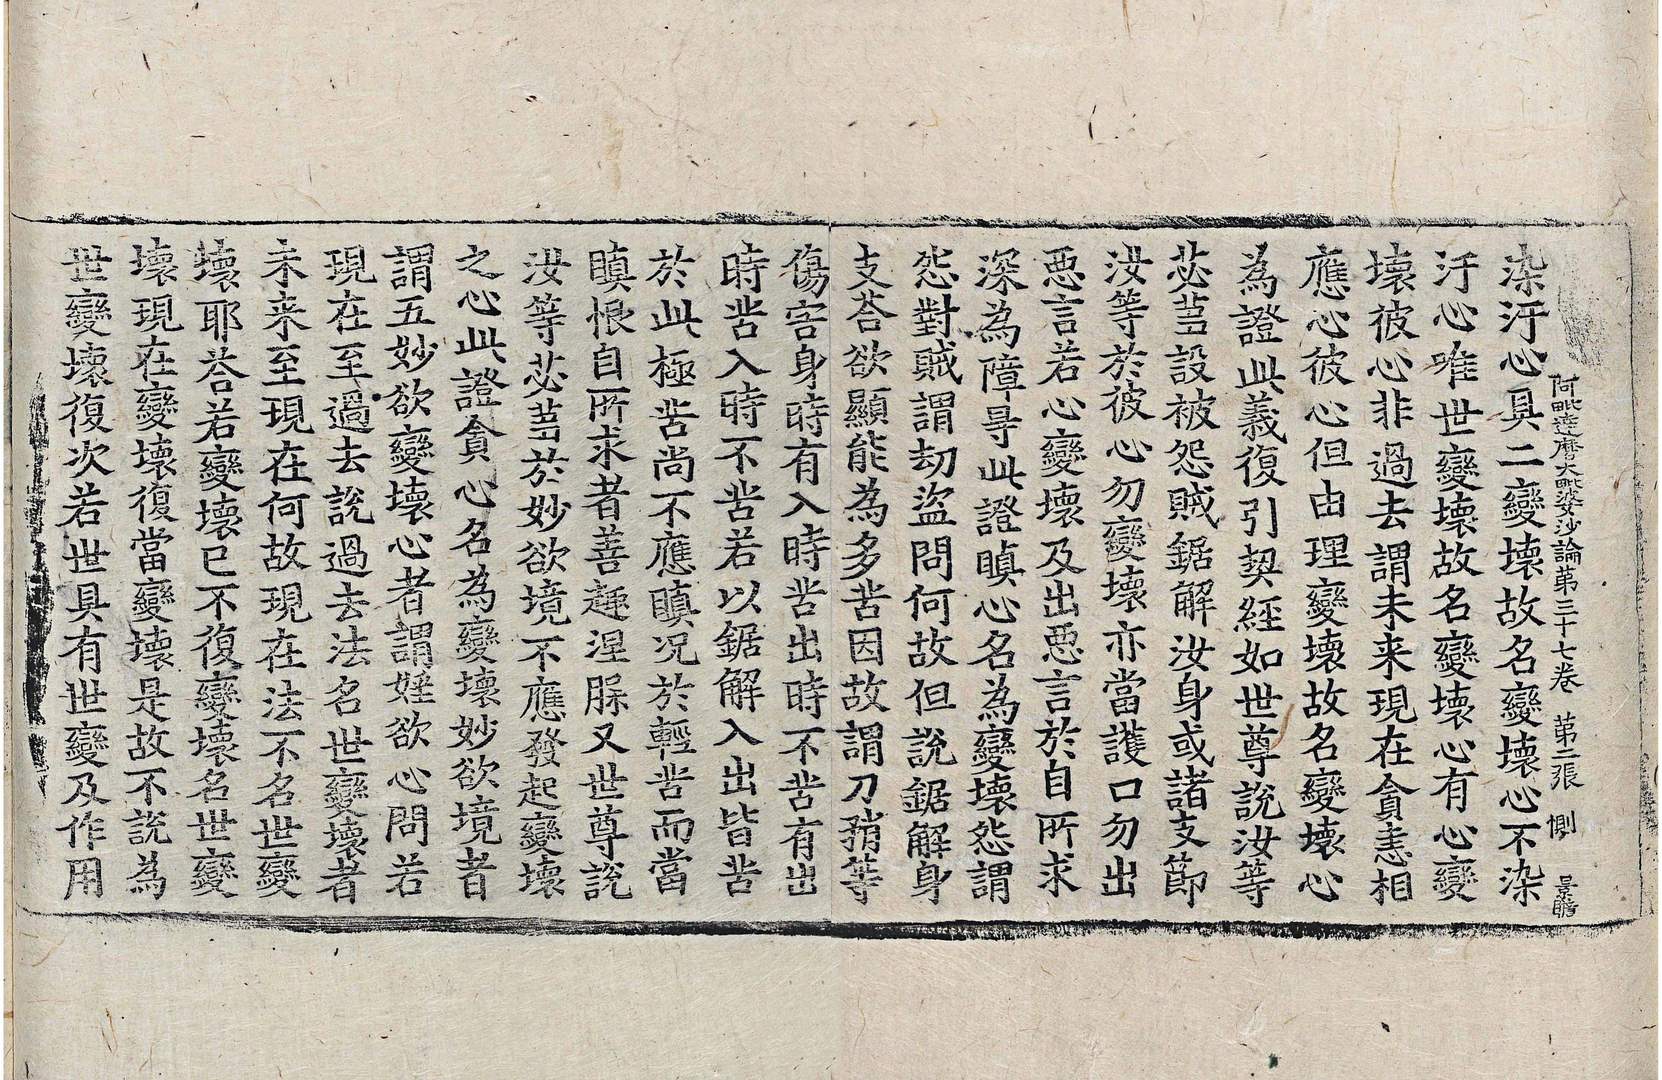 阿毗達磨大毗婆沙論第三十七卷　第二張　惻　景瞻
染汙心具二變壞故名變壞心不染
汙心唯世變壞故名變壞心有心變
壞彼心非過去謂未来現在貪恚相
應心彼心但由理變壞故名變壞心
為證此義復引契經如世尊說汝等
苾芻設被怨賊鋸解汝身或諸支節
汝等於彼心勿變壞亦當護口勿出
惡言若心變壞及出惡言於自所求
深為障㝵此證瞋心名為變壞怨謂
怨對賊謂劫盜問何故但說鋸解身
支荅欲顯能為多苦因故謂刀矟等
傷害身時有入時苦出時不苦有出
時苦入時不苦若以鋸解入出皆苦
於此極苦尚不應瞋况於輕苦而當
瞋恨自所求者善趣涅脲又世尊說
汝等苾芻於妙欲境不應發起變壞
之心此證貪心名為變壞妙欲境者
謂五妙欲變壞心者謂婬欲心問若
現在至過去說過去法名世變壞者
未来至現在何故現在法不名世變
壞耶荅若變壞已不復變壞名世變
壞現在變壞復當變壞是故不說為
世變壞復次若世具有世變及作用